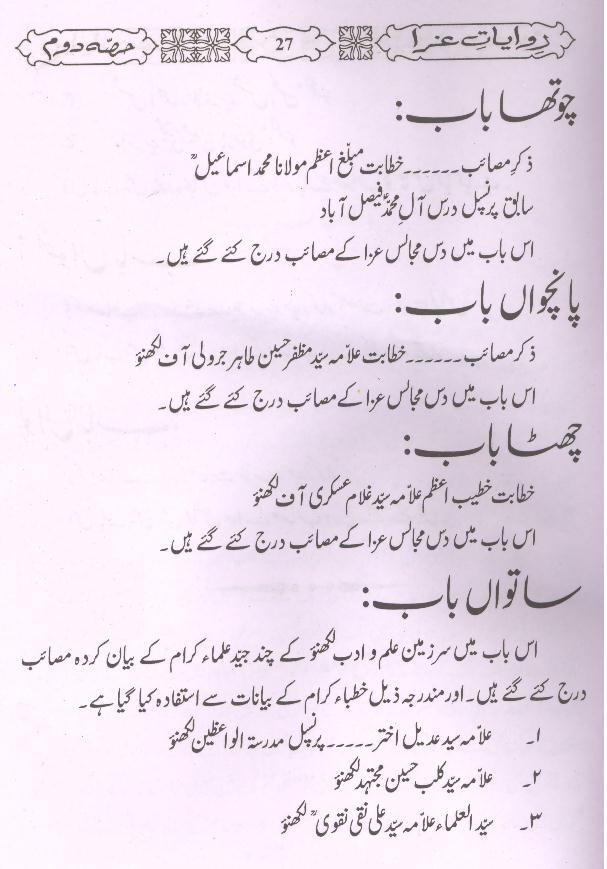 روایاتِ عزا 27 حصّہ دوم
چوتھا باب:
ذکرِ مصائب۔۔۔۔۔۔خطابت مبلّغ اعظم مولانا محمد اسماعیلؒ
سابق پرنسپل درس آلِ محمدؑ فیصل آباد
اس باب میں دس مجالس عزا کے مصائب درج کئے گئے ہیں۔
پانچواں باب:
ذکر مصائب۔۔۔۔۔۔خطابت علاّمہ سیّد مظفر حسین طاہر جرولی آف لکھنؤ
اس باب میں دس مجالس عزا کے مصائب درج کئے گئے ہیں۔
چھٹا باب:
خطابت خطیب اعظم علاّمہ سیّد غلام عسکری آف لکھنؤ
اس باب میں دس مجالس عزا کے مصائب درج کئے گئے ہیں۔
ساتواں باب:
اس باب میں سرزمین علم و ادب لکھنؤ کے چند جیّد علماء کرام کے بیان کردہ مصائب
درج کئے گئے ہیں۔ اور مندرجہ ذیل خطباء کرام کے بیانات سے استفادہ کیا گیا ہے۔
۱۔ علاّمہ سید عدیل اختر۔۔۔۔۔پرنسپل مدرستہ الواعظین لکھنؤ
۲۔ علاّمہ سیّد کلب حسین مجتہد لکھنؤ
۳۔ سیّد العلماء علاّمہ سیّد علی نقی نقویؒ لکھنؤ